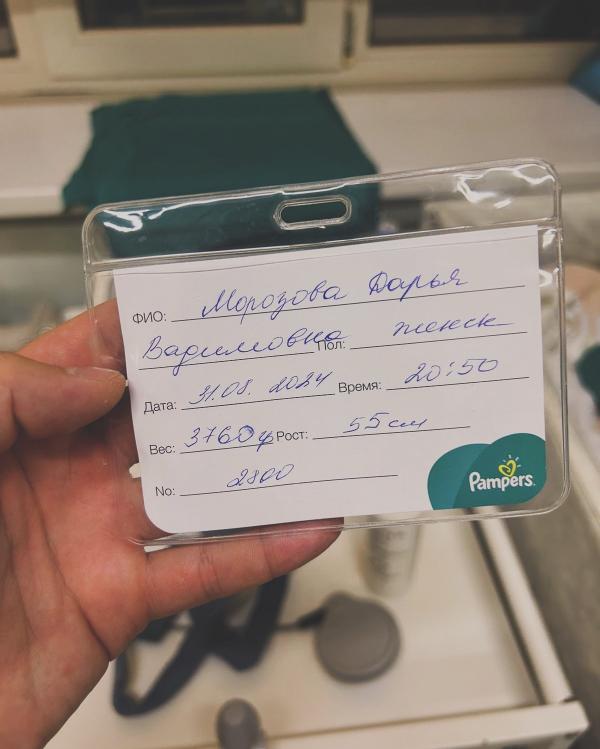 ФИО: Морозова Дарья
Вадимовна Пол: женск
Дата: 31.08.2024 Время: 20:50
Вес: 3760г Рост: 55см
No: 2800
Pampers